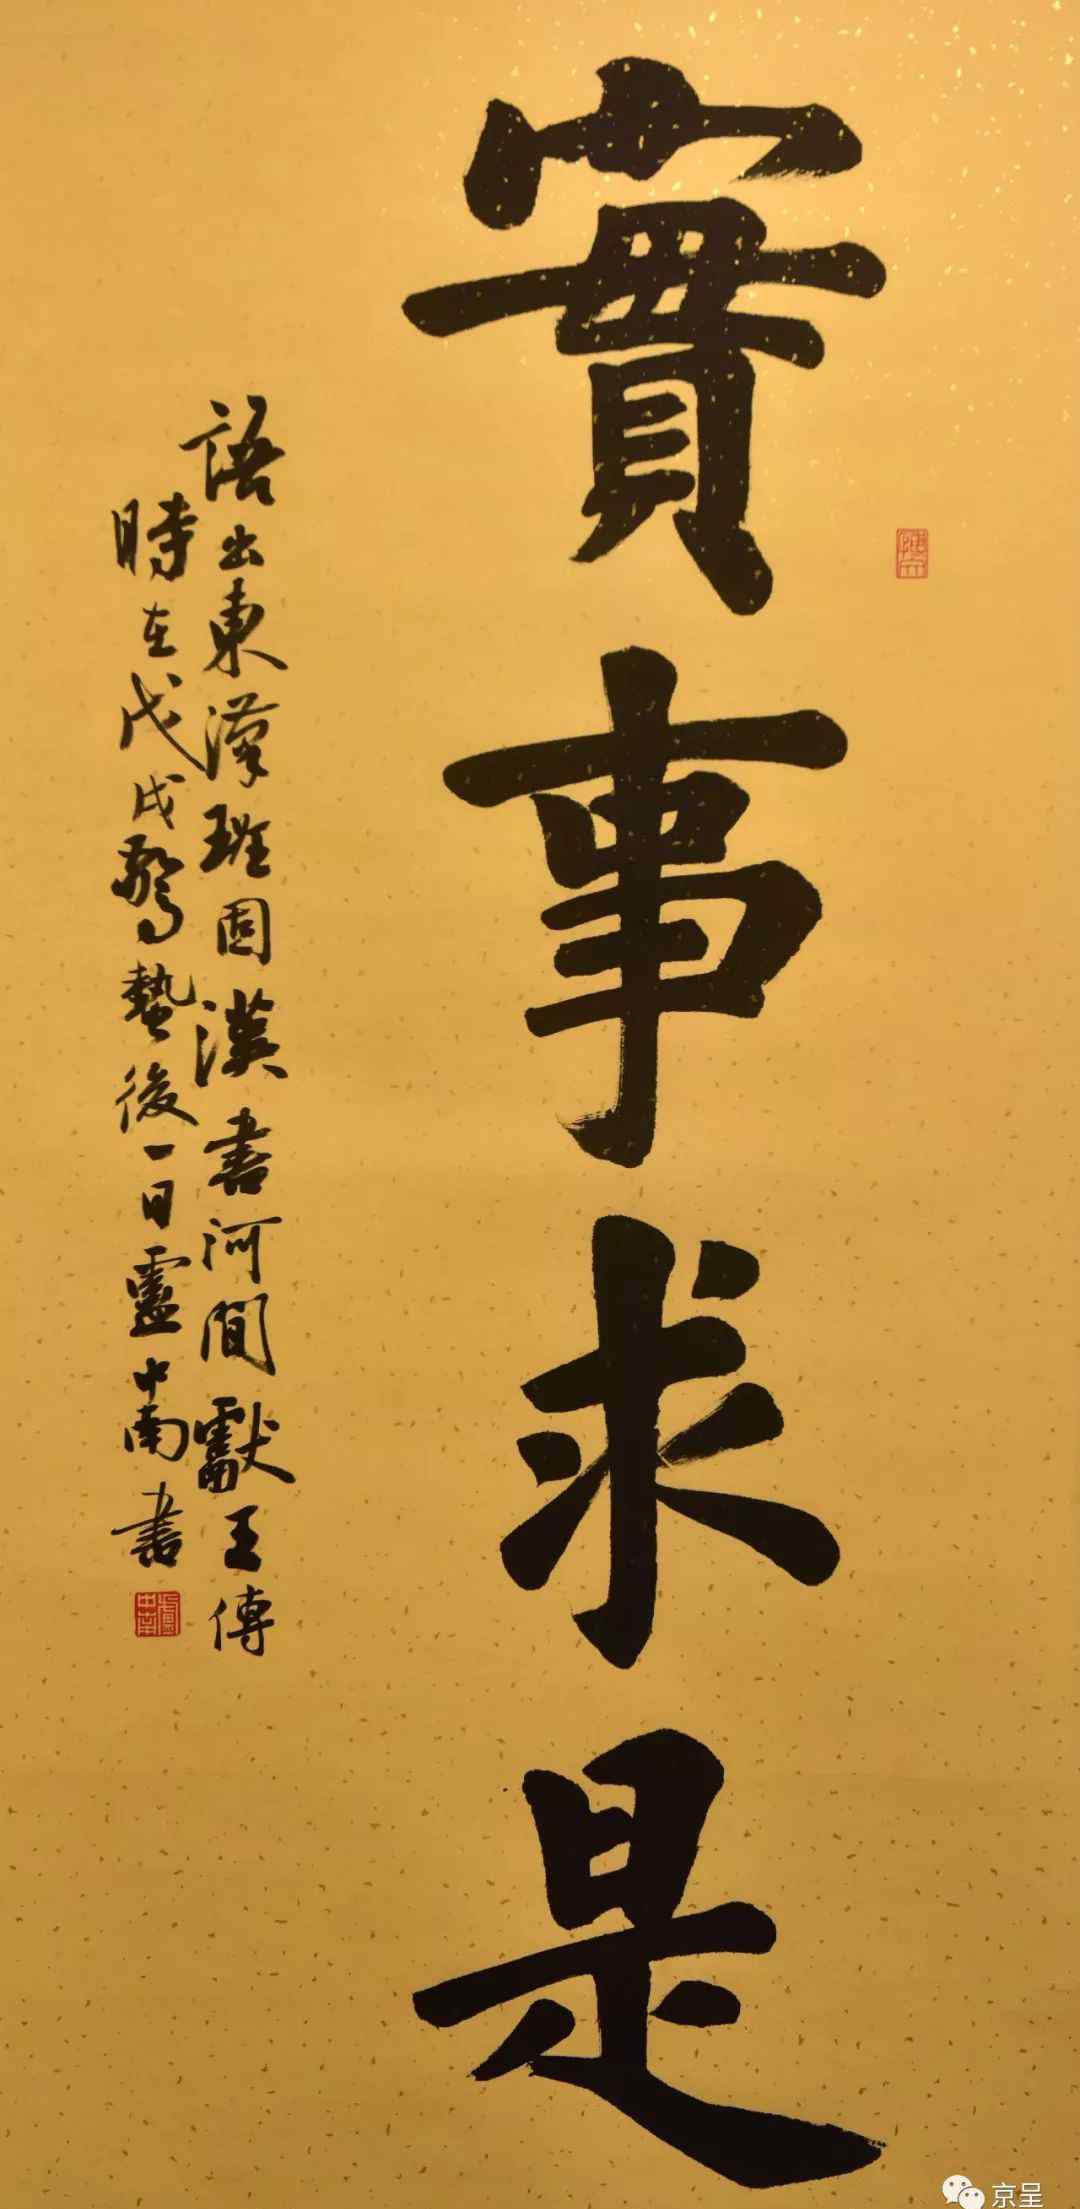 實事求是
語出東漢班固漢書河間獻王傳
時在戊戌驚蟄後一日盧中南書
盧中南
京呈